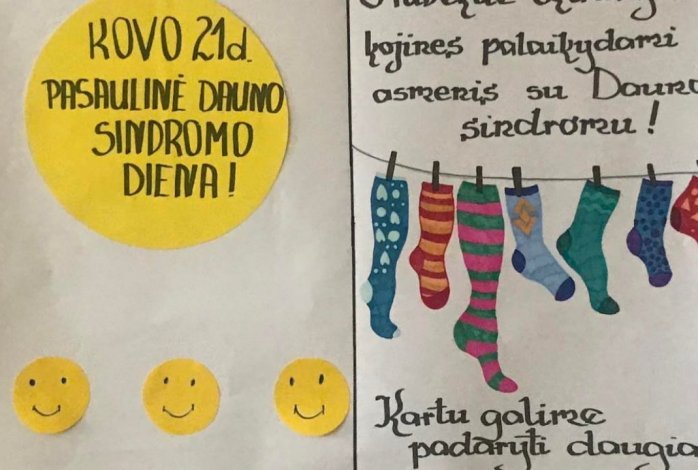 KOVO 21d.
PASAULINĖ DAUNO
SINDROMO
DIENA!
kojines palaikydami
asmenis su Dauno
sindromu!
Kartu galime
padaryti daugia